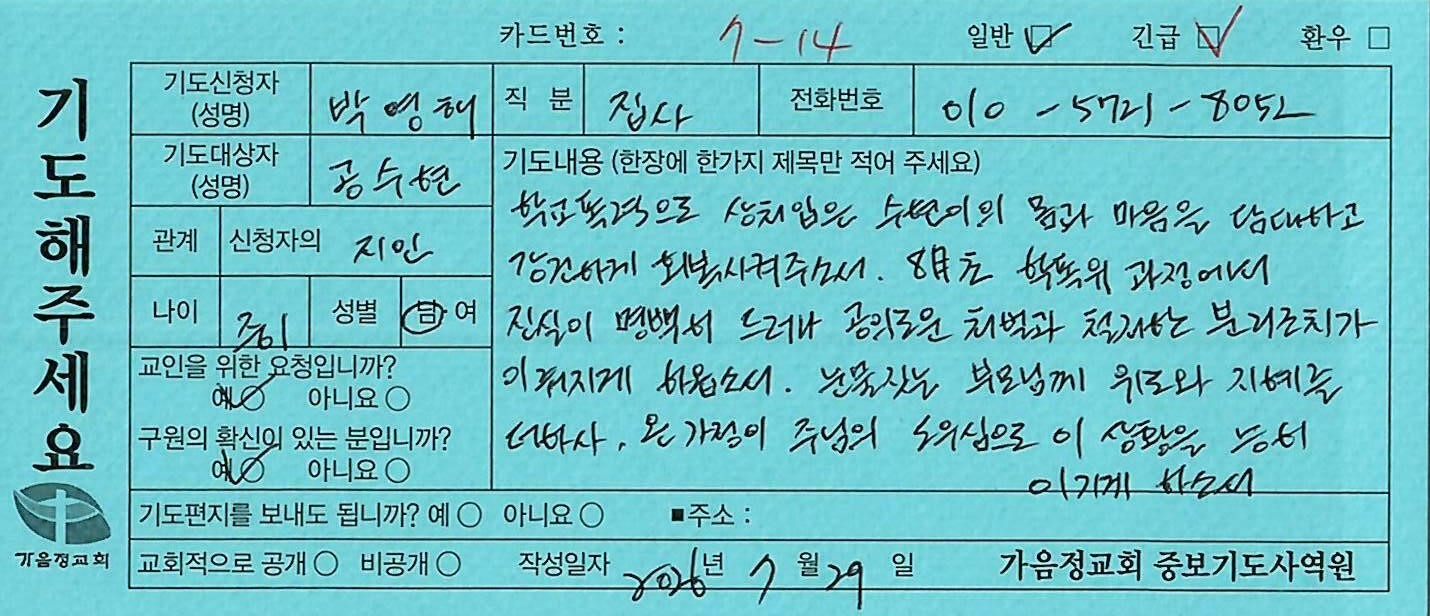 카드번호 : 7-14 일반 ☑ 긴급 ☑ 환우 □
기도해주세요
기도신청자 (성명) 박영해 직 분 집사 전화번호 010-5721-8052
기도대상자 (성명) 공수현
관계 신청자의 지인
나이 중1 성별 남 여
교인을 위한 요청입니까?
예 ○ 아니요 ○
구원의 확신이 있는 분입니까?
예 ○ 아니요 ○
기도내용 (한장에 한가지 제목만 적어 주세요)
학교폭력으로 상처입은 수현이의 몸과 마음을 담대하고
강건하게 회복시켜주소서. 8월초 학폭위 과정에서
진실이 명백히 드러나 공의로운 처벌과 철저한 분리조치가
이뤄지게 하옵소서. 눈물짓는 부모님께 위로와 지혜를
더하사, 온 가정이 주님의 도우심으로 이 상황을 능히
이기게 하소서
기도편지를 보내도 됩니까? 예 ○ 아니요 ○ ■주소 :
교회적으로 공개 ○ 비공개 ○ 작성일자 2026년 7월 29일 가음정교회 중보기도사역원
가음정교회